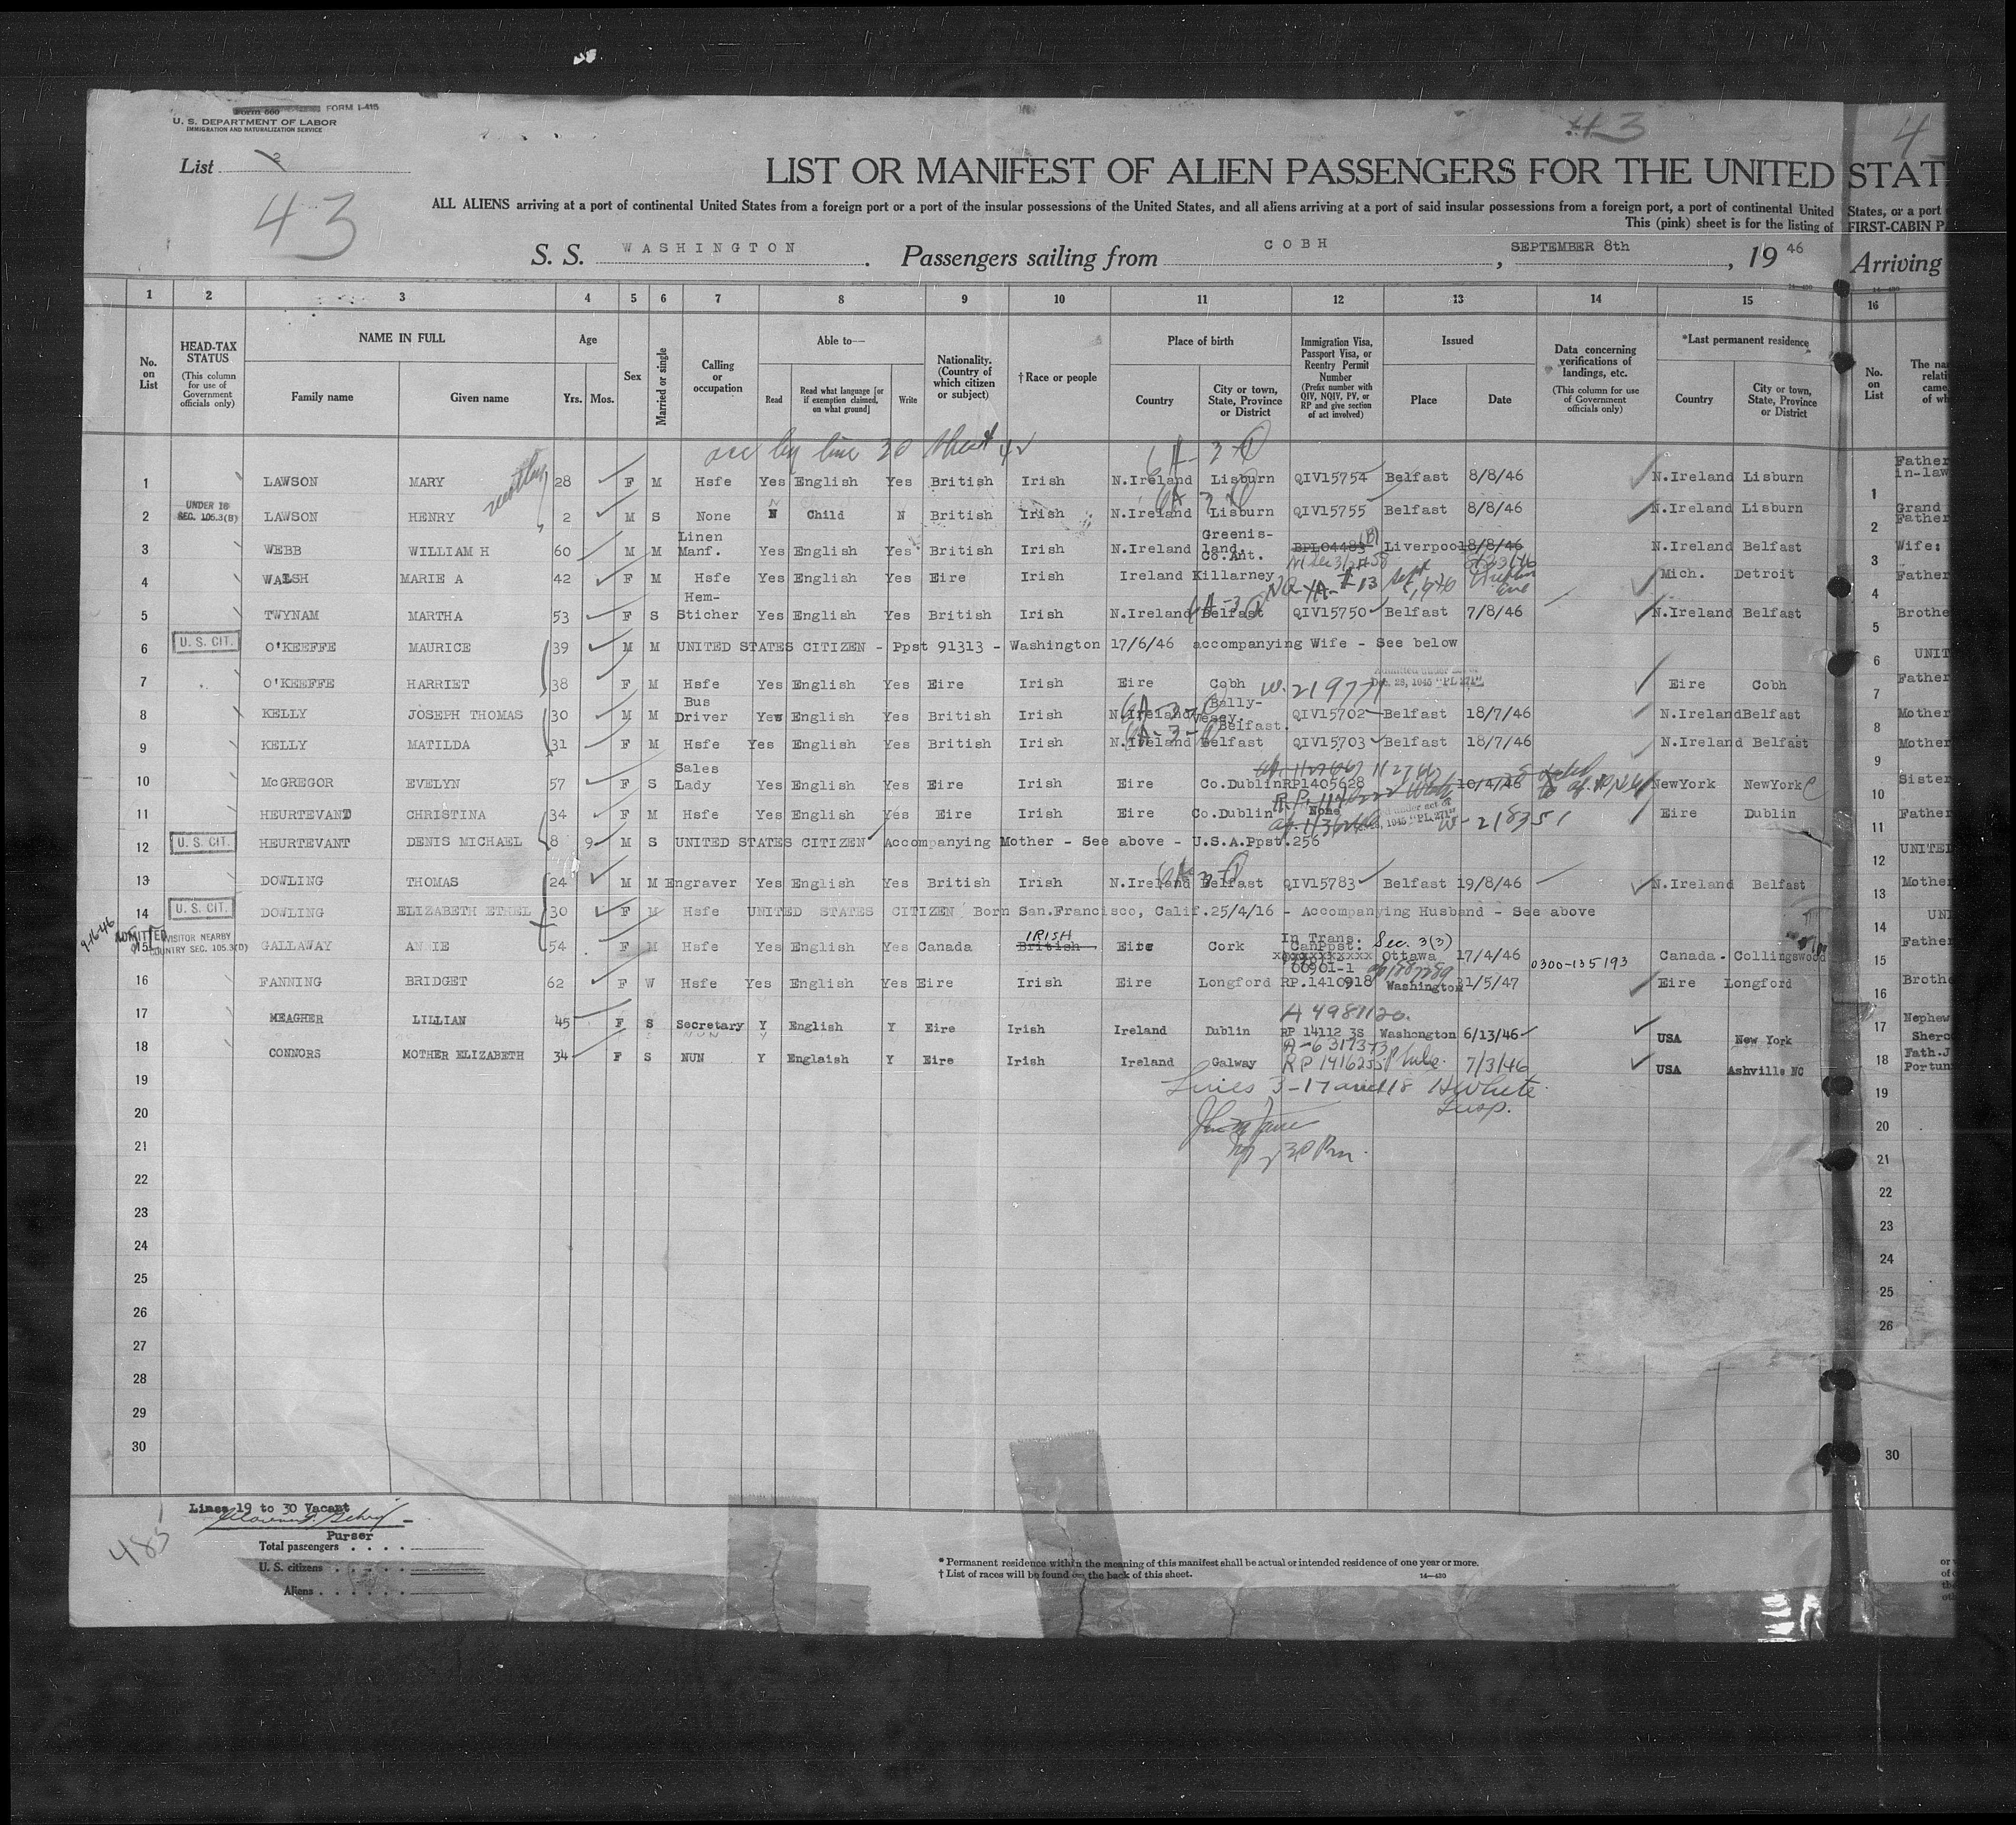 Form 500 FORM I-415
U. S. DEPARTMENT OF LABOR
IMMIGRATION AND NATURALIZATION SERVICE
List 2
43
43 4
LIST OR MANIFEST OF ALIEN PASSENGERS FOR THE UNITED STAT
ALL ALIENS arriving at a port of continental United States from a foreign port or a port of the insular possessions of the United States, and all aliens arriving at a port of said insular possessions from a foreign port, a port of continental United States, or a port
This (pink) sheet is for the listing of FIRST-CABIN PA
S. S. WASHINGTON . Passengers sailing from COBH , SEPTEMBER 8th , 19 46 Arriving
1 2 3 4 5 6 7 8 9 10 11 12 13 14 15 16
No. on List
HEAD-TAX STATUS (This column for use of Government officials only)
NAME IN FULL Family name Given name
Age Yrs. Mos.
Sex
Married or single
Calling or occupation
Able to— Read Read what language [or if exemption claimed, on what ground] Write
Nationality. (Country of which citizen or subject)
†Race or people
Place of birth Country City or town, State, Province or District
Immigration Visa, Passport Visa, or Reentry Permit Number (Prefix number with QIV, NQIV, PV, or RP and give section of act involved)
Issued Place Date
Data concerning verifications of landings, etc. (This column for use of Government officials only)
*Last permanent residence Country City or town, State, Province or District
No. on List
The na
relati
came,
of wh
line 30 Sheet 42
1 LAWSON MARY 28 F M Hsfe Yes English Yes British Irish N.Ireland Lisburn QIV15754 Belfast 8/8/46 N.Ireland Lisburn 1 Father in-law
2 UNDER 16 SEC. 105.3(B) LAWSON HENRY 2 M S None N Child N British Irish N.Ireland Lisburn QIV15755 Belfast 8/8/46 N.Ireland Lisburn 2 Grand Father
3 WEBB WILLIAM H 60 M M Linen Manf. Yes English Yes British Irish N.Ireland Greenis-land. Co.Ant. BPL04483 Liverpool 8/8/46 N.Ireland Belfast 3 Wife:
4 WALSH MARIE A 42 F M Hsfe Yes English Yes Eire Irish Ireland Killarney Mich. Detroit 4 Father
5 TWYNAM MARTHA 53 F S Hem-Sticher Yes English Yes British Irish N.Ireland Belfast QIV15750 Belfast 7/8/46 N.Ireland Belfast 5 Brothe
6 U. S. CIT. O'KEEFFE MAURICE 39 M M UNITED STATES CITIZEN - Ppst 91313 - Washington 17/6/46 accompanying Wife - See below 6 UNIT
7 O'KEEFFE HARRIET 38 F M Hsfe Yes English Yes Eire Irish Eire Cobh Dec. 28, 1945 "PL 271" Eire Cobh 7 Father
8 KELLY JOSEPH THOMAS 30 M M Bus Driver Yes English Yes British Irish N.Ireland Bally-Vesey. Belfast. QIV15702 Belfast 18/7/46 N.Ireland Belfast 8 Mother
9 KELLY MATILDA 31 F M Hsfe Yes English Yes British Irish N.Ireland Belfast QIV15703 Belfast 18/7/46 N.Ireland Belfast 9 Mother
10 McGREGOR EVELYN 57 F S Sales Lady Yes English Yes Eire Irish Eire Co.Dublin RP1405628 10/4/46 NewYork NewYork 10 Sister
11 HEURTEVANT CHRISTINA 34 F M Hsfe Yes English Yes Eire Irish Eire Co.Dublin None W-218351 Eire Dublin 11 Father
12 U. S. CIT. HEURTEVANT DENIS MICHAEL 8 9 M S UNITED STATES CITIZEN Accompanying Mother - See above - U.S.A.Ppst.256 12 UNITED
13 DOWLING THOMAS 24 M M Engraver Yes English Yes British Irish N.Ireland Belfast QIV15783 Belfast 19/8/46 N.Ireland Belfast 13 Mother
14 U. S. CIT. DOWLING ELIZABETH ETHEL 30 F M Hsfe UNITED STATES CITIZEN Born San.Francisco, Calif.25/4/16 - Accompanying Husband - See above 14 UNI
9-16-46 ADMITTED 15 VISITOR NEARBY COUNTRY SEC. 105.3(D) GALLAWAY ANNIE 54 F M Hsfe Yes English Yes Canada IRISH British Eire Cork In Trans. CanPpst. Sec. 3(3) Ottawa 17/4/46 0300-135193 Canada. Collingswood 15 Father
16 FANNING BRIDGET 62 F W Hsfe Yes English Yes Eire Irish Eire Longford RP.1410918 Washington 21/5/47 Eire Longford 16 Brothe
A 4981120.
17 MEAGHER LILLIAN 45 F S Secretary Y English Y Eire Irish Ireland Dublin RP 14112 3S Washongton 6/13/46 USA New York 17 Nephew Sherc
18 CONNORS MOTHER ELIZABETH 34 F S NUN Y Englaish Y Eire Irish Ireland Galway RP 1416255 7/3/46 USA Ashville NC 18 Fath.J Portun
19 Lines 3-17 and 18 H White Insp. 19
20 20
21 21
22 22
23 23
24 24
25 25
26 26
27
28
29
30 30
Lines 19 to 30 Vacant
Purser
485
Total passengers
U. S. citizens
Aliens
* Permanent residence within the meaning of this manifest shall be actual or intended residence of one year or more.
† List of races will be found on the back of this sheet. 14—430